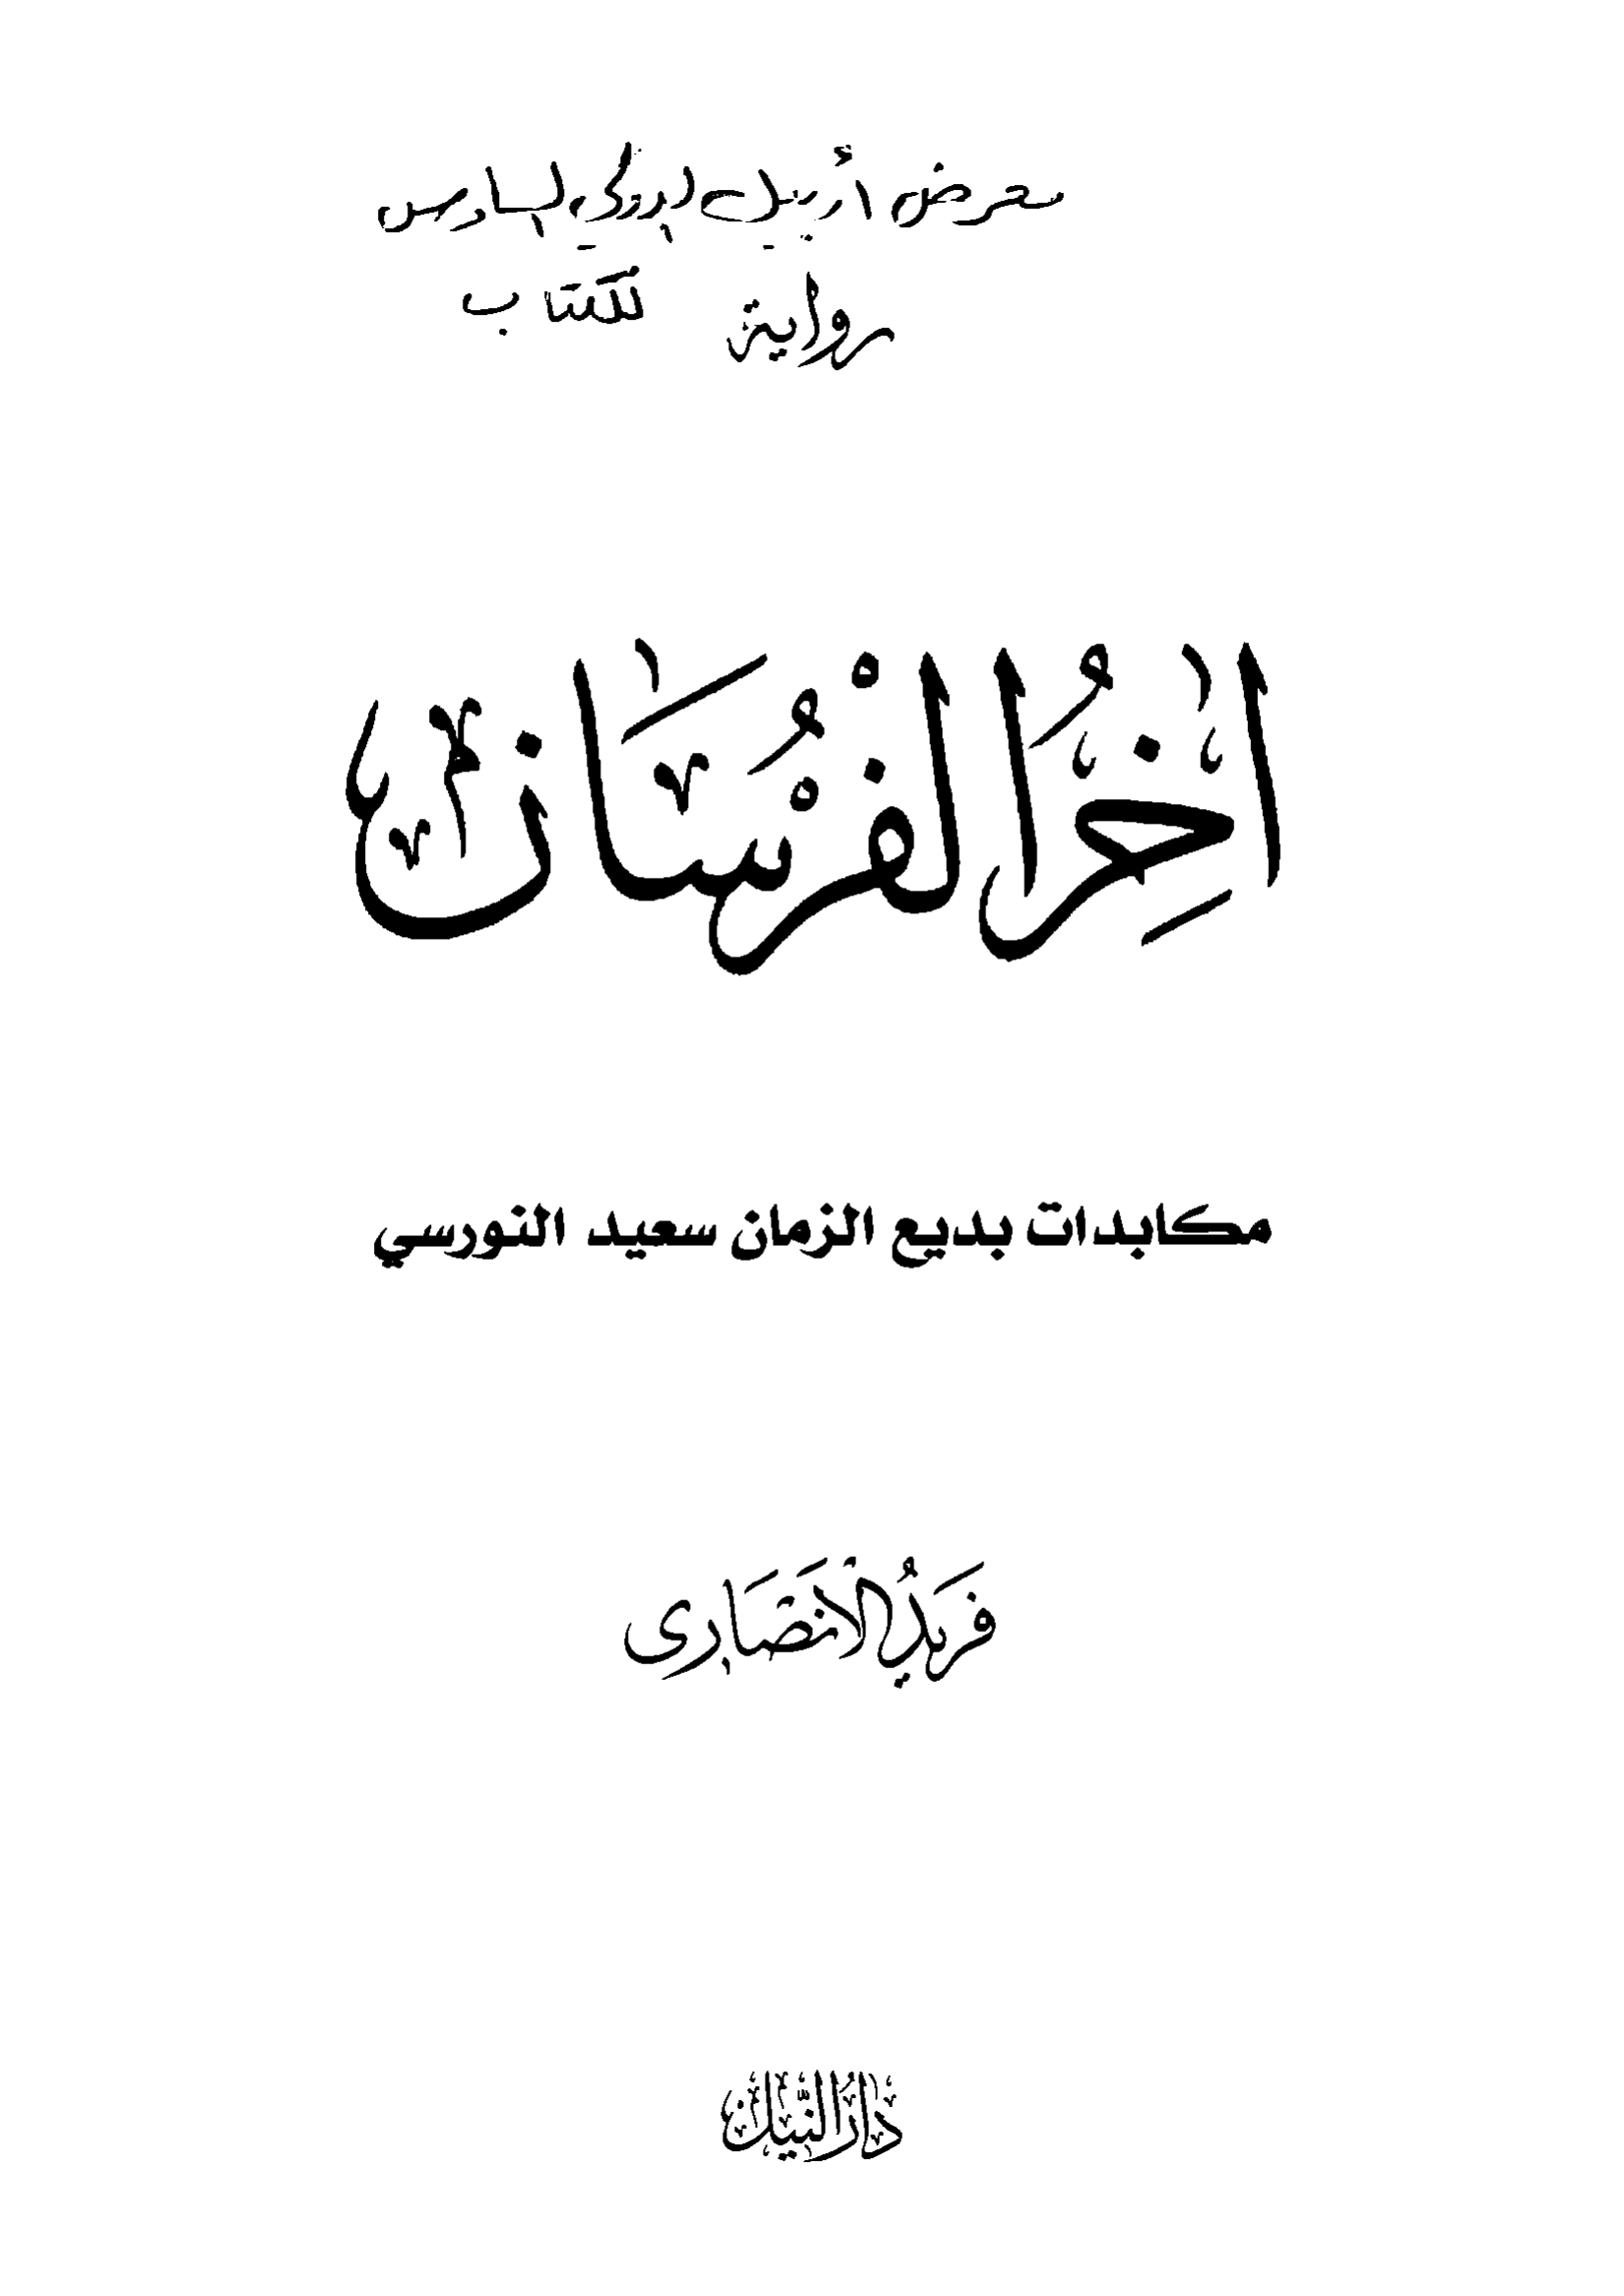 معرض أربيل الدولي السادس
للكتاب
رواية
اٰخِرُ الْفُرْسَانِ
مكابدات بديع الزمان سعيد النورسي
فَرِيدُ الْأَنصَارِى
دَارُ النِّيلِ